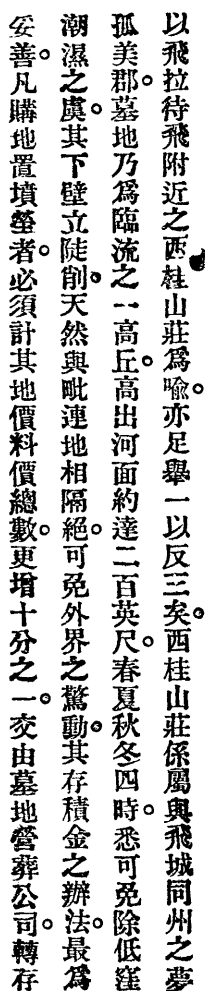 以飛拉待飛附近之西桂山莊爲喩。亦足舉一以反三矣。西桂山莊係屬與飛城同州之夢
孤美郡。墓地乃爲臨流之一高丘。高出河面約達二百英尺。春夏秋冬四時。悉可免除低窪
潮濕之虞。其下壁立陡削。天然與毗連地相隔絕。可免外界之驚動。其存積金之辦法。最爲
妥善。凡購地置墳塋者。必須計其地價料價總數。更增十分之一。交由墓地營葬公司。轉存